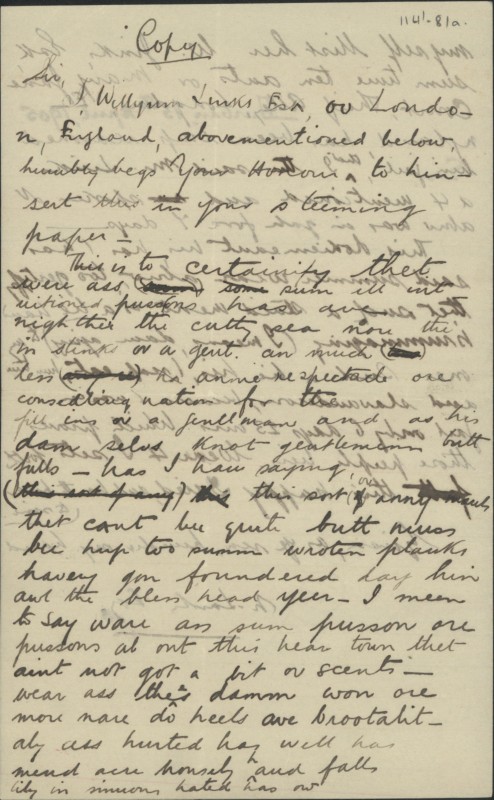 114'-81a.
Copy
Sir,
I Wellyum Jinks Esq, ov Londo-
n, England, abovementioned below,
humbly begs Your Honour, to hin-
sert this in your steeming
paper -
This is to certainify thet
were ass some sum ill int
nitioned pussons has ave
nighther the cutty sea nore the
in stinks ov a gent. an much
less ha annie respectade ore
considdiny nation for the
fill ins ov a jentlman and as his
dam selvs knot gentlemann butt
fulls - has I haw saying
(this sort of any) this this sort ov anny
thet cant bee quite butt muss
bee hup too summ wroten planks
haveng gon foundered day hin
aut the bless head year - I meen
to say ware ass sum pusson ore
pussons ab out this hear town thet
aint not got a bit ov scents -
wear ass this damm won ore
more nare do heels ave brootalit-
aly ass hurted hay well has
mend acre honsely and falls
lily in simious hated has ow